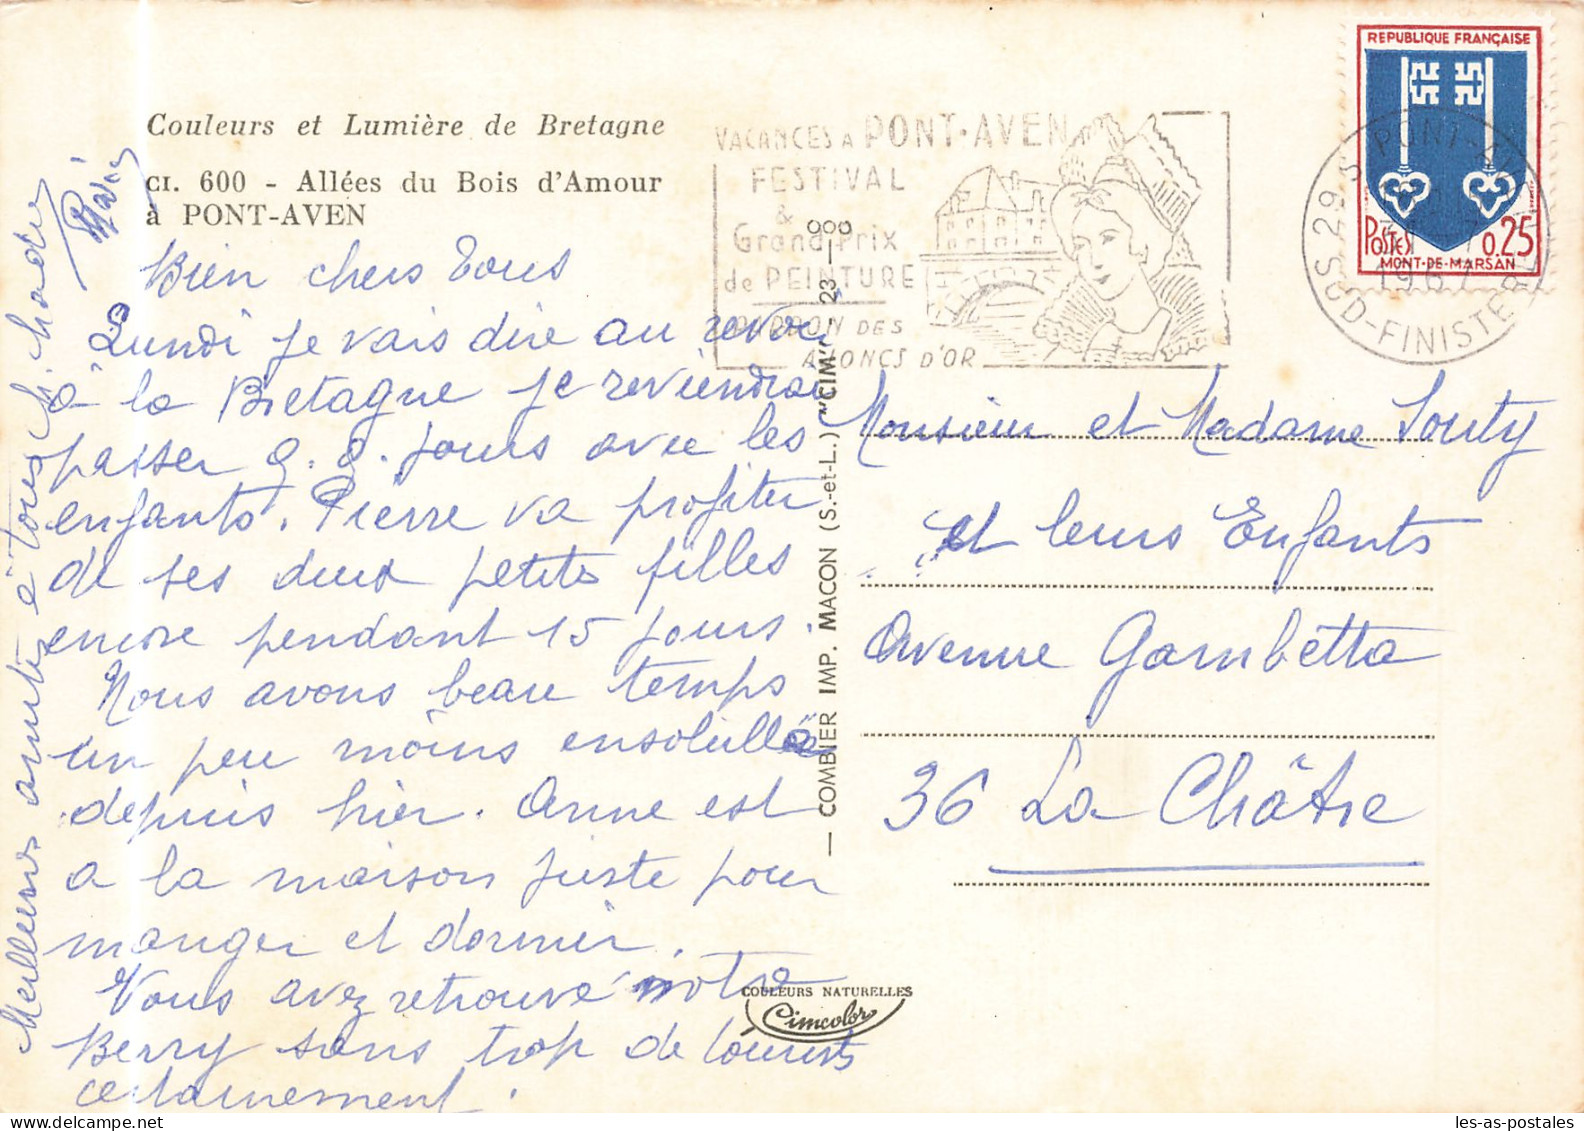 Couleurs et Lumière de Bretagne
CI. 600 - Allées du Bois d'Amour
à PONT-AVEN
Bien chers Tous
Lundi je vais dire au revoir
à la Bretagne je reviendrai
passer q. q. jours avec les
enfants. Pierre va profiter
de ses deux petites filles
encore pendant 15 jours.
Nous avons beau temps
un peu moins ensoleillé
depuis hier. Anne est
a la maison juste pour
manger et dormir.
Vous avez retrouvé notre
Berry sans trop de tourists
certainement.
Meilleures amitiés à tous
VACANCES A PONT-AVEN
FESTIVAL
&
Grand Prix
de PEINTURE
PARDON DES
AJONCS D'OR
REPUBLIQUE FRANÇAISE
POSTES 0,25
MONT-DE-MARSAN
29 S PONT-AVEN
1967
SUD-FINISTERE
— COMBIER IMP. MACON (S.-et-L.) "CIM" — 23 —
Monsieur et Madame Souty
et leurs Enfants
Avenue Gambetta
36 La Châtre
COULEURS NATURELLES
Cimcolor
les-as-postales.com